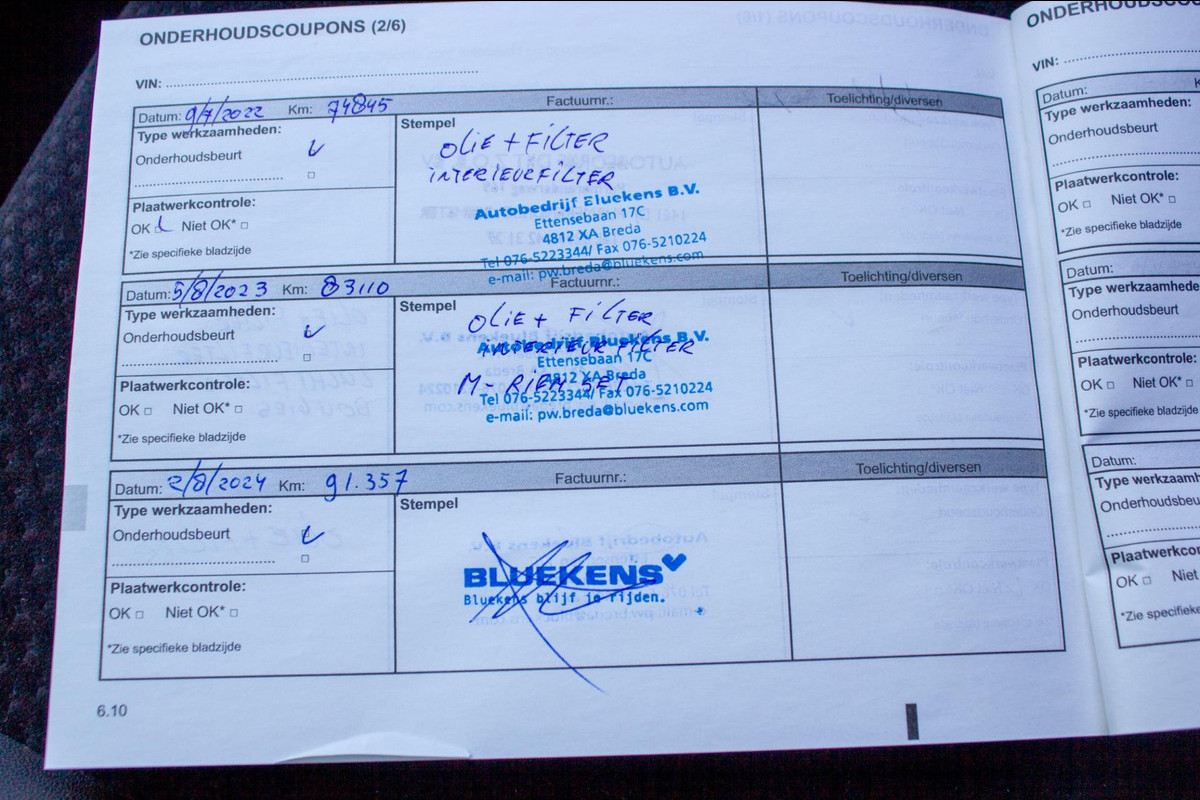 ONDERHOUDSCOUPONS (2/6)
VIN:
Datum: 9/7/2022 Km: 74845 Factuurnr.: Toelichting/diversen
Type werkzaamheden:
Onderhoudsbeurt
Plaatwerkcontrole:
OK Niet OK*
*Zie specifieke bladzijde
Stempel
OLIE + FILTER
INTERIEURFILTER
Autobedrijf Bluekens B.V.
Ettensebaan 17C
4812 XA Breda
Tel 076-5223344/ Fax 076-5210224
e-mail: pw.breda@bluekens.com
Datum: 5/8/2023 Km: 83110 Factuurnr.: Toelichting/diversen
Type werkzaamheden:
Onderhoudsbeurt
Plaatwerkcontrole:
OK Niet OK*
*Zie specifieke bladzijde
Stempel
OLIE + FILTER
INTERIEUR FILTER
M-RIEM SET
Autobedrijf Bluekens B.V.
Ettensebaan 17C
4812 XA Breda
Tel 076-5223344/ Fax 076-5210224
e-mail: pw.breda@bluekens.com
Datum: 2/8/2024 Km: 91.357 Factuurnr.: Toelichting/diversen
Type werkzaamheden:
Onderhoudsbeurt
Plaatwerkcontrole:
OK Niet OK*
*Zie specifieke bladzijde
Stempel
BLUEKENS
Bluekens blijf je rijden.
6.10
ONDERHOUDSCOU
VIN:
Datum: K
Type werkzaamheden:
Onderhoudsbeurt
Plaatwerkcontrole:
OK Niet OK*
*Zie specifieke bladzijde
Datum:
Type werkzaamhede
Onderhoudsbeurt
Plaatwerkcontrole:
OK Niet OK*
*Zie specifieke bladzijde
Datum:
Type werkzaamh
Onderhoudsbeu
Plaatwerkco
OK Niet
*Zie specifieke